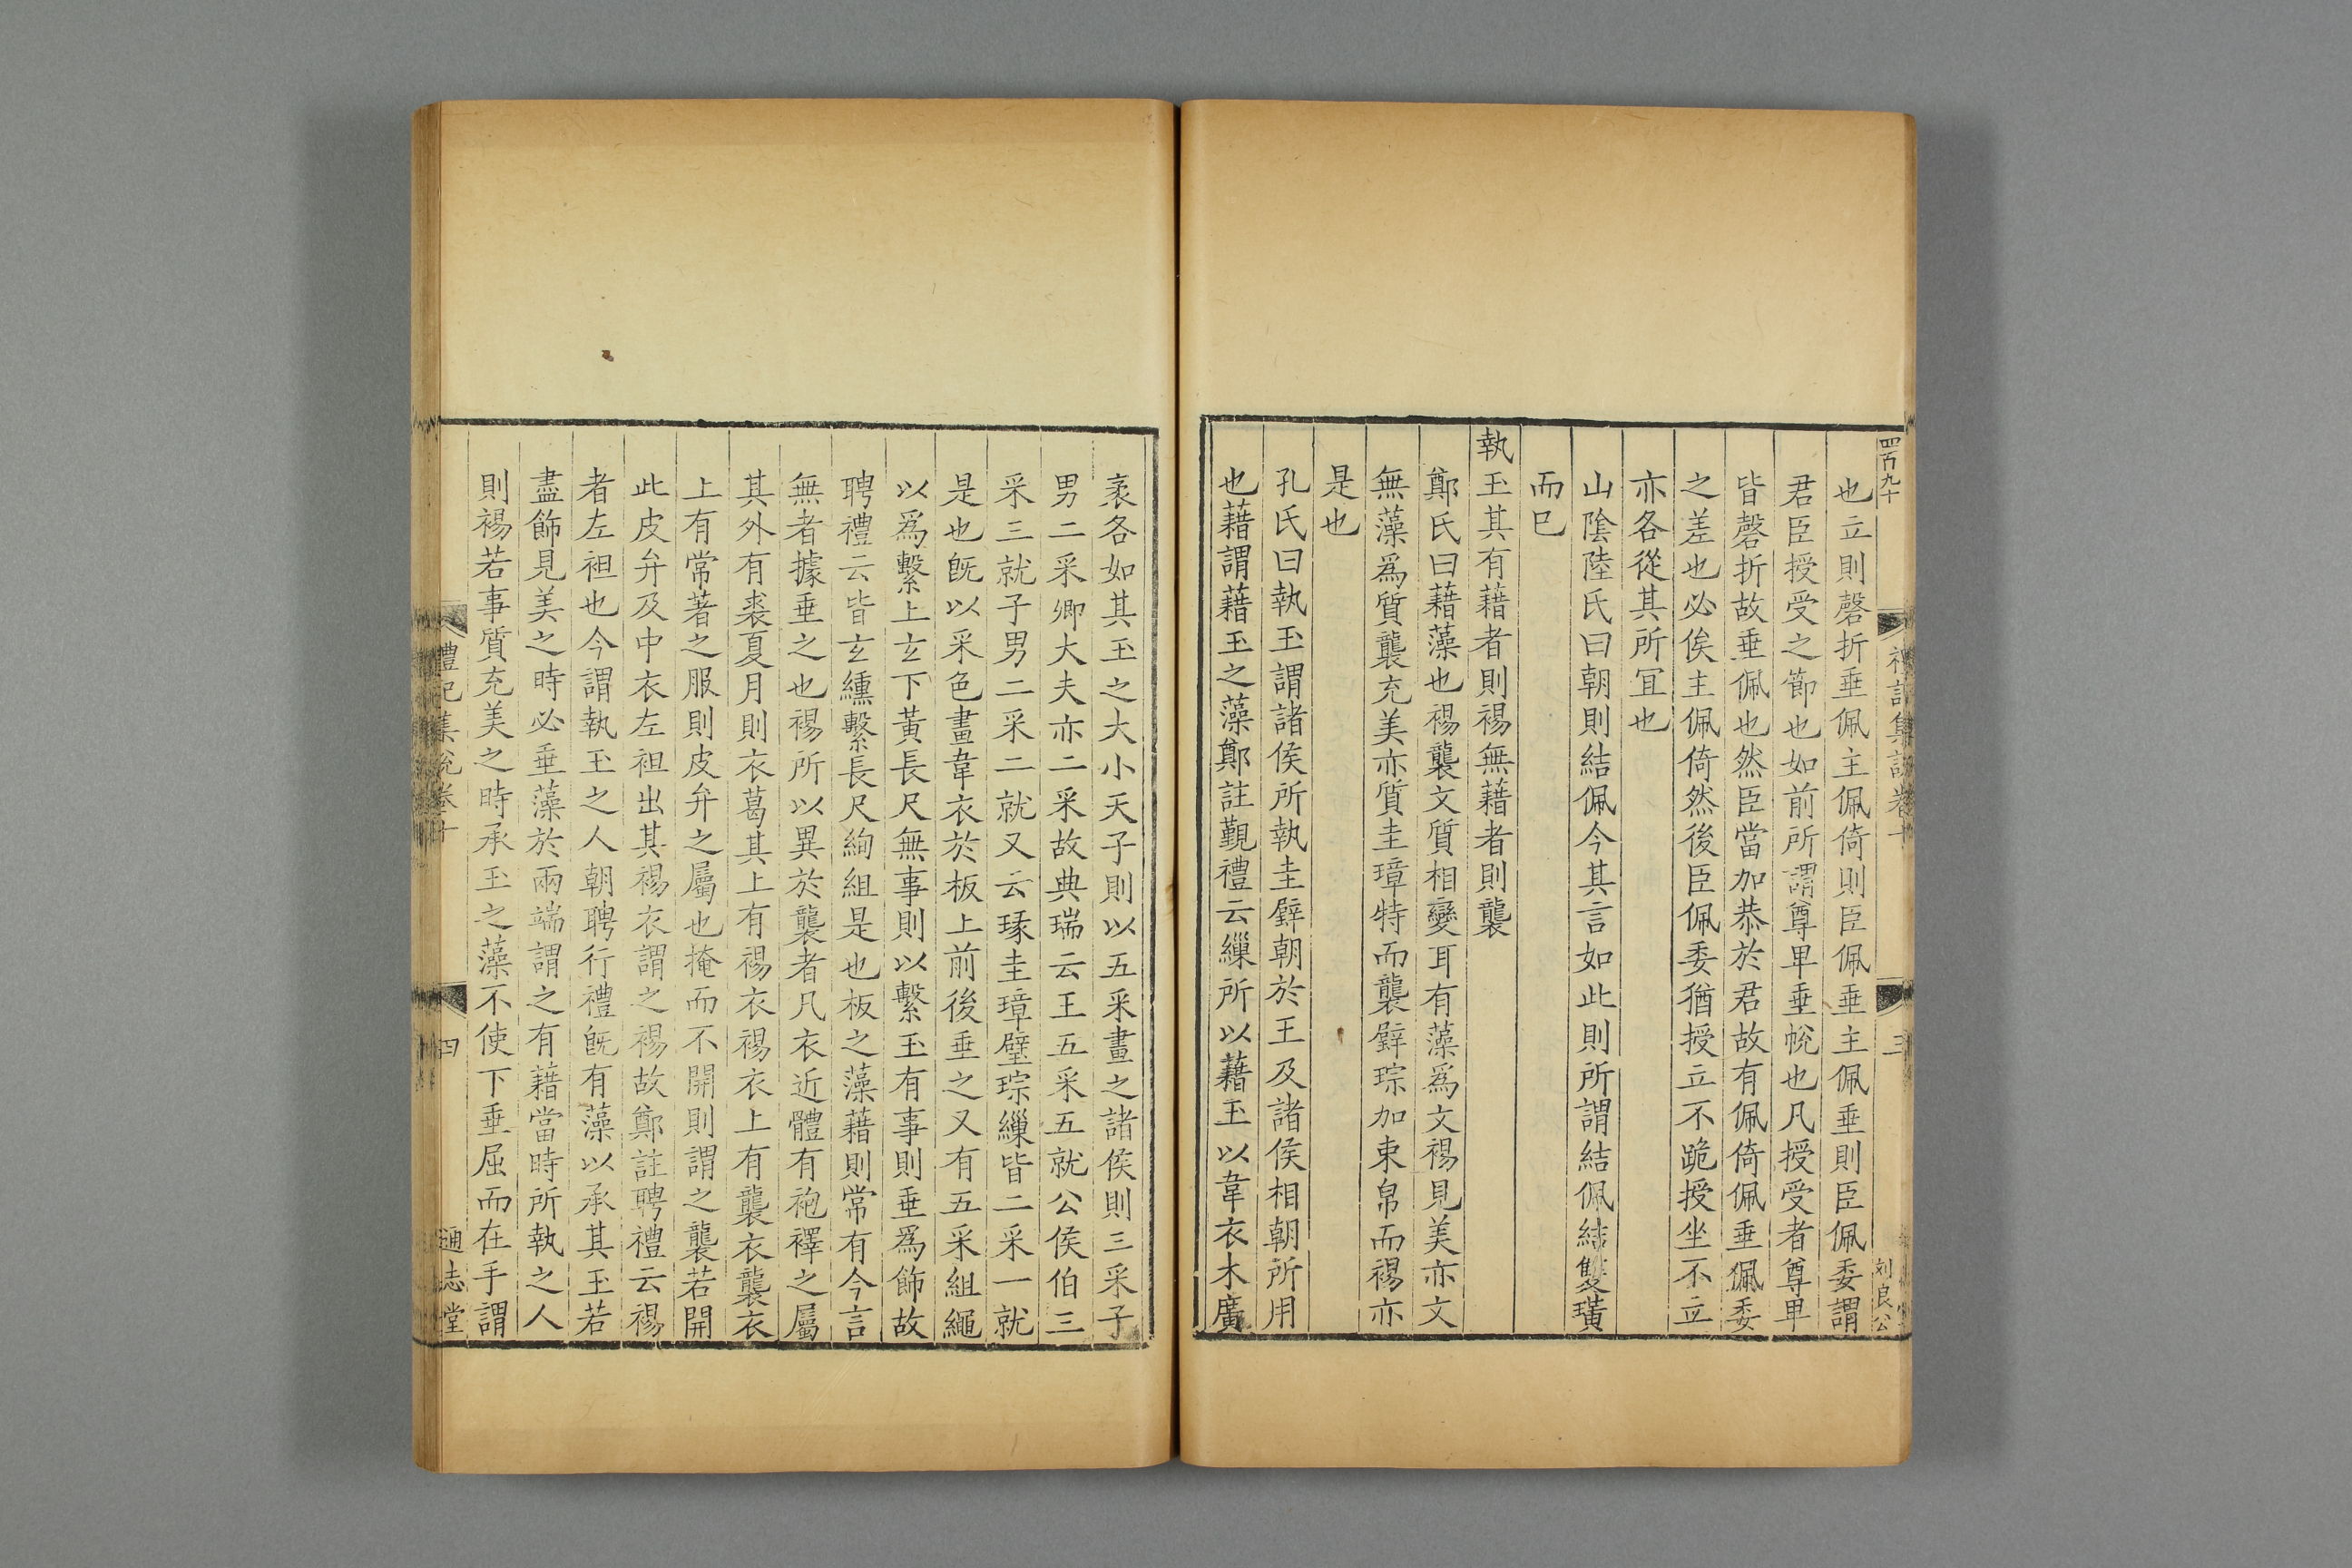 四百九十
三
刘良公
也立則磬折垂佩主佩倚則臣佩垂主佩垂則臣佩委謂
君臣授受之節也如前所謂尊卑垂帨也凡授受者尊卑
皆磬折故垂佩也然臣當加恭於君故有佩倚佩垂佩委
之差也必俟主佩倚然後臣佩委猶授立不跪授坐不立
亦各從其所宜也
山陰陸氏曰朝則結佩今其言如此則所謂結佩結雙璜
而已
執玉其有藉者則裼無藉者則襲
鄭氏曰藉藻也裼襲文質相變耳有藻爲文裼見美亦文
無藻爲質襲充美亦質圭璋特而襲璧琮加束帛而裼亦
是也
孔氏曰執玉謂諸侯所執圭璧朝於王及諸侯相朝所用
也藉謂藉玉之藻鄭註覲禮云繅所以藉玉以韋衣木廣
袤各如其玉之大小天子則以五采畫之諸侯則三采子
男二采卿大夫亦二采故典瑞云王五采五就公侯伯三
采三就子男二采二就又云瑑圭璋璧琮繅皆二采一就
是也旣以采色畫韋衣於板上前後垂之又有五采組繩
以爲繫上玄下黃長尺無事則以繫玉有事則垂爲飾故
聘禮云皆玄纁繫長尺絢組是也板之藻藉則常有今言
無者據垂之也裼所以異於襲者凡衣近體有袍襗之屬
其外有裘夏月則衣葛其上有裼衣裼衣上有襲衣襲衣
上有常著之服則皮弁之屬也掩而不開則謂之襲若開
此皮弁及中衣左袒出其裼衣謂之裼故鄭註聘禮云裼
者左袒也今謂執玉之人朝聘行禮旣有藻以承其玉若
盡飾見美之時必垂藻於兩端謂之有藉當時所執之人
則裼若事質充美之時承玉之藻不使下垂屈而在手謂
禮記集說卷十
四
通志堂